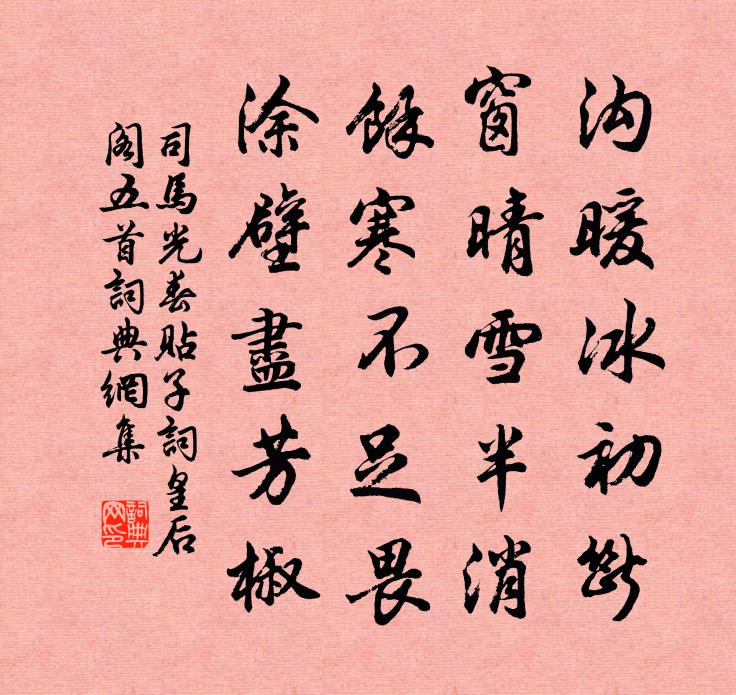 沟暖冰初断
窗晴雪半消
馀寒不足畏
涂壁盡芳椒
司馬光春貼子詞皇后
阁五首詞典網集
詞典网印